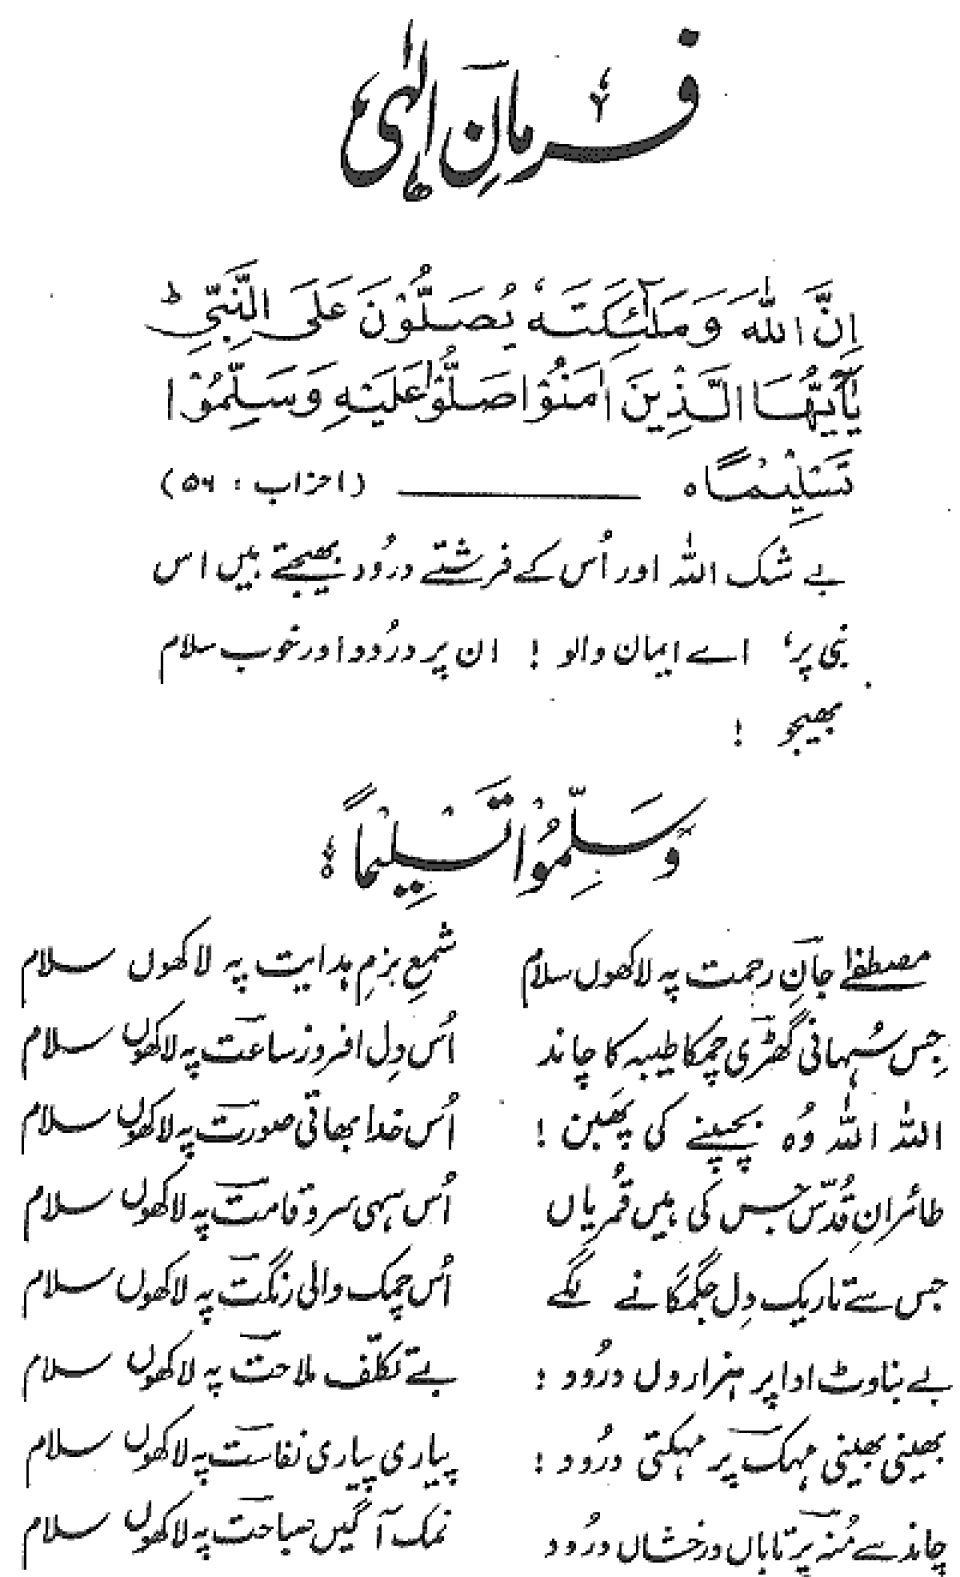 فرمانِ الٰہی
اِنَّ اللّٰهَ وَمَلٰٓئِكَتَهٗ يُصَلُّوْنَ عَلَى النَّبِيِّ ط
يٰٓاَيُّهَا الَّذِيْنَ اٰمَنُوْا صَلُّوْا عَلَيْهِ وَسَلِّمُوْا
تَسْلِيْمًا ه ــــــــــــ (احزاب : ۵۶)
بے شک اللہ اور اُس کے فرشتے درُود بھیجتے ہیں اس
نبی پر، اے ایمان والو ! ان پر درُود اور خوب سلام
بھیجو !
وَسَلِّمُوْا تَسْلِيْمًا ه
مصطفےٰ جانِ رحمت پہ لاکھوں سلام شمعِ بزمِ ہدایت پہ لاکھوں سلام
جِس سُہانی گھڑی چمکا طیبہ کا چاند اُس دِل افروز ساعت پہ لاکھوں سلام
اللہ اللہ وُہ بچپنے کی پھَبن ! اُس خدا بھاتی صورت پہ لاکھوں سلام
طائرانِ قُدّس جس کی ہیں قُمریاں اُس سہی سرو قامت پہ لاکھوں سلام
جس سے تاریک دِل جگمگانے لگے اُس چمک والی رنگت پہ لاکھوں سلام
بے بناوٹ ادا پر ہزاروں درُود : بے تکلّف ملاحت پہ لاکھوں سلام
بھینی بھینی مہک پر مہکتی درُود : پیاری پیاری نفاست پہ لاکھوں سلام
چاند سے مُنہ پر تاباں درخشاں درُود نمک آگیں صباحت پہ لاکھوں سلام